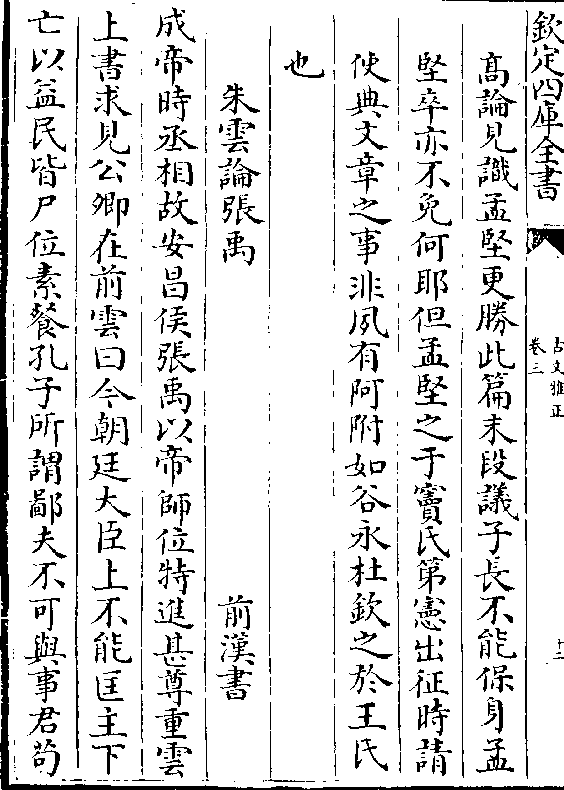 欽定四庫全書
古文雅正
卷三
十二
高論見識孟堅更勝此篇末段議子長不能保身孟
堅卒亦不免何耶但孟堅之于竇氏第憲出征時請
使典文章之事非夙有阿附如谷永杜欽之於王氏
也
朱雲論張禹
前漢書
成帝時丞相故安昌侯張禹以帝師位特進甚尊重雲
上書求見公卿在前雲曰今朝廷大臣上不能匡主下
亡以益民皆尸位素餐孔子所謂鄙夫不可與事君茍